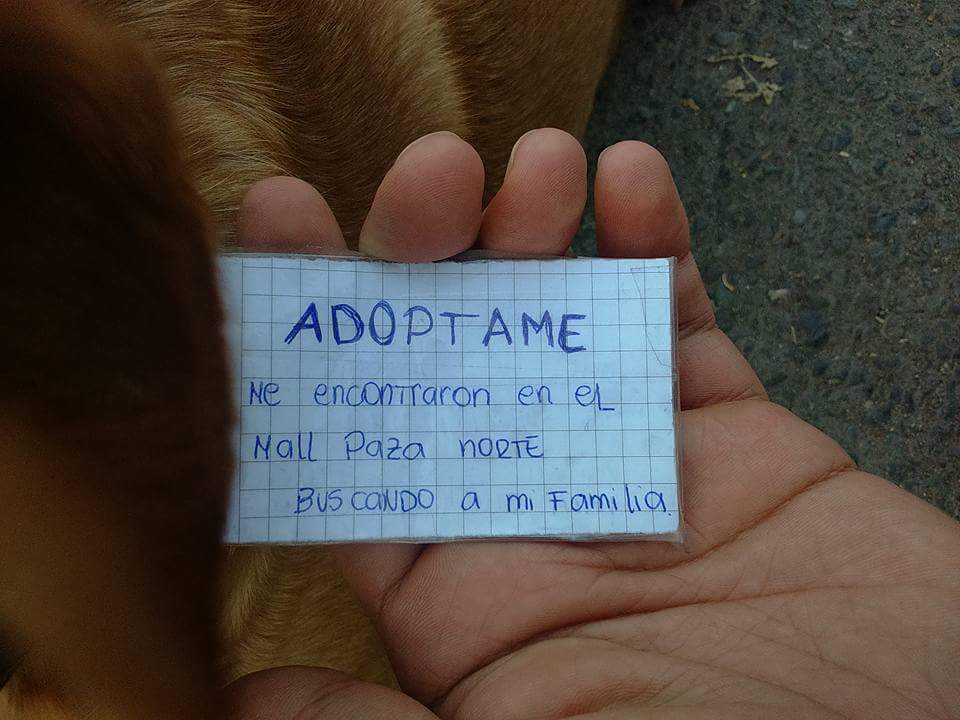 ADOPTAME
Me encontraron en el
Mall Paza NORTE
BUSCANDO a mi Familia.